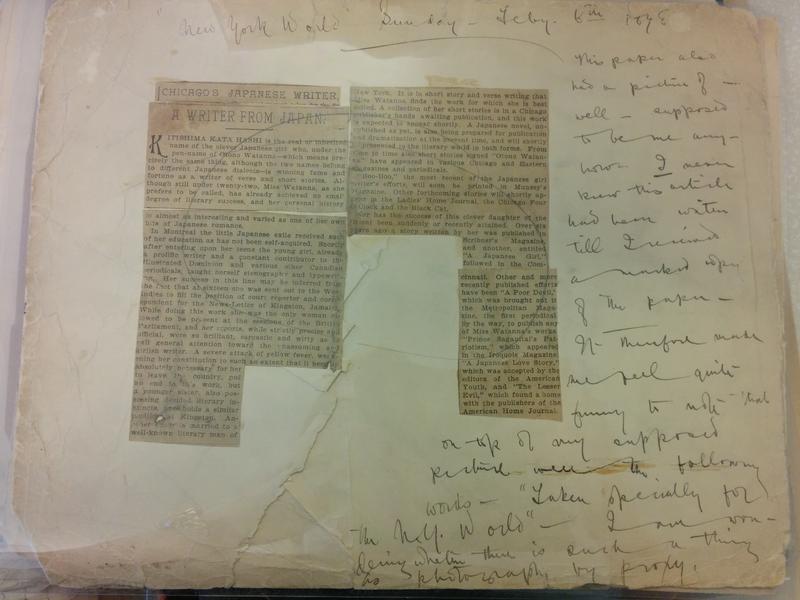 "New York World" Sunday - Feby. 6th 1898
CHICAGO'S JAPANESE WRITER
A WRITER FROM JAPAN.
KITISHIMA KATA HASHI is the real or inherited
name of the clever Japanese girl who, under the
pen-name of Otono Watanna—which means pre-
cisely the same thing, although the two names belong
to different Japanese dialects—is winning fame and
fortune as a writer of verse and short stories. Al-
though still under twenty-two, Miss Watanna, as she
prefers to be called, has already achieved no small
degree of literary success, and her personal history
is almost as interesting and varied as one of her own
bits of Japanese romance.
In Montreal the little Japanese exile received such
of her education as has not been self-acquired. Shortly
after entering upon her teens the young girl, already
a prolific writer and a constant contributor to the
Illustrated Dominion and various other Canadian
periodicals, taught herself stenography and typewrit-
ing. Her success in this line may be inferred from
the fact that at sixteen she was sent out to the West
Indies to fill the position of court reporter and corre-
spondent for the News-Letter of Kingston, Jamaica.
While doing this work she was the only woman al-
lowed to be present at the sessions of the British
Parliament, and her reports, while strictly precise and
official, were so brilliant, sarcastic and witty as to
call general attention toward the unassuming
girlish writer. A severe attack of yellow fever, weak-
ening her constitution to such an extent that it became
absolutely necessary for her
to leave the country, put
an end to this work, but
a younger sister, also pos-
sessing decided literary in-
stincts, now holds a similar
position at Kingston. An-
other sister is married to a
well-known literary man of
New York. It is in short story and verse writing that
Miss Watanna finds the work for which she is best
suited. A collection of her short stories is in a Chicago
publisher's hands awaiting publication, and this work
is expected to appear shortly. A Japanese novel, un-
published as yet, is also being prepared for publication
and dramatization at the present time, and will shortly
be presented to the literary world in both forms. From
time to time also short stories signed "Otono Watan-
na" have appeared in various Chicago and Eastern
magazines and periodicals.
"Hoo-Hoo," the most recent of the Japanese girl
writer's efforts, will soon be printed in Munsey's
Magazine. Other forthcoming stories will shortly ap-
pear in the Ladies' Home Journal, the Chicago Four
O'Clock and the Black Cat.
Nor has the success of this clever daughter of the
Orient been suddenly or recently attained. Over six
years ago a story written by her was published in
Scribner's Magazine,
and another, entitled
"A Japanese Girl,"
followed in the Com-
cinnati. Other and more
recently published efforts
have been "A Poor Devil,"
which was brought out in
the Metropolitan Maga-
zine, the first periodical,
by the way, to publish any
of Miss Watanna's works;
"Prince Sagaritai's Pat-
riotism," which appeared
in the Iroquois Magazine;
"A Japanese Love Story,"
which was accepted by the
editors of the American
Youth, and "The Lesser
Evil," which found a home
with the publishers of the
American Home Journal.
This paper also
had a picture of —
well — supposed
to be me any-
how. I never
knew this article
had been written
till I received
a marked copy
of the paper —
It therefore made
me feel quite
funny to note that
on top of my supposed
picture were the following
words — "Taken specially for
the N.Y. World" — I am won-
dering whether there is such a thing
as photography by proxy.